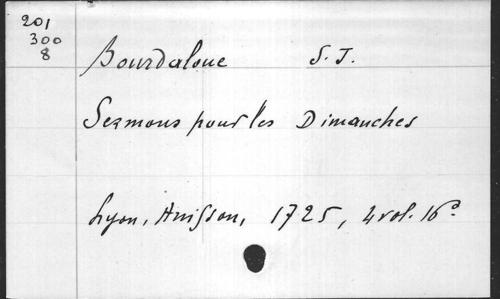 201
300
8
Bourdaloue S. J.
Sermons pour les Dimanches
Lyon, Anisson, 1725, 4 vol. 16°